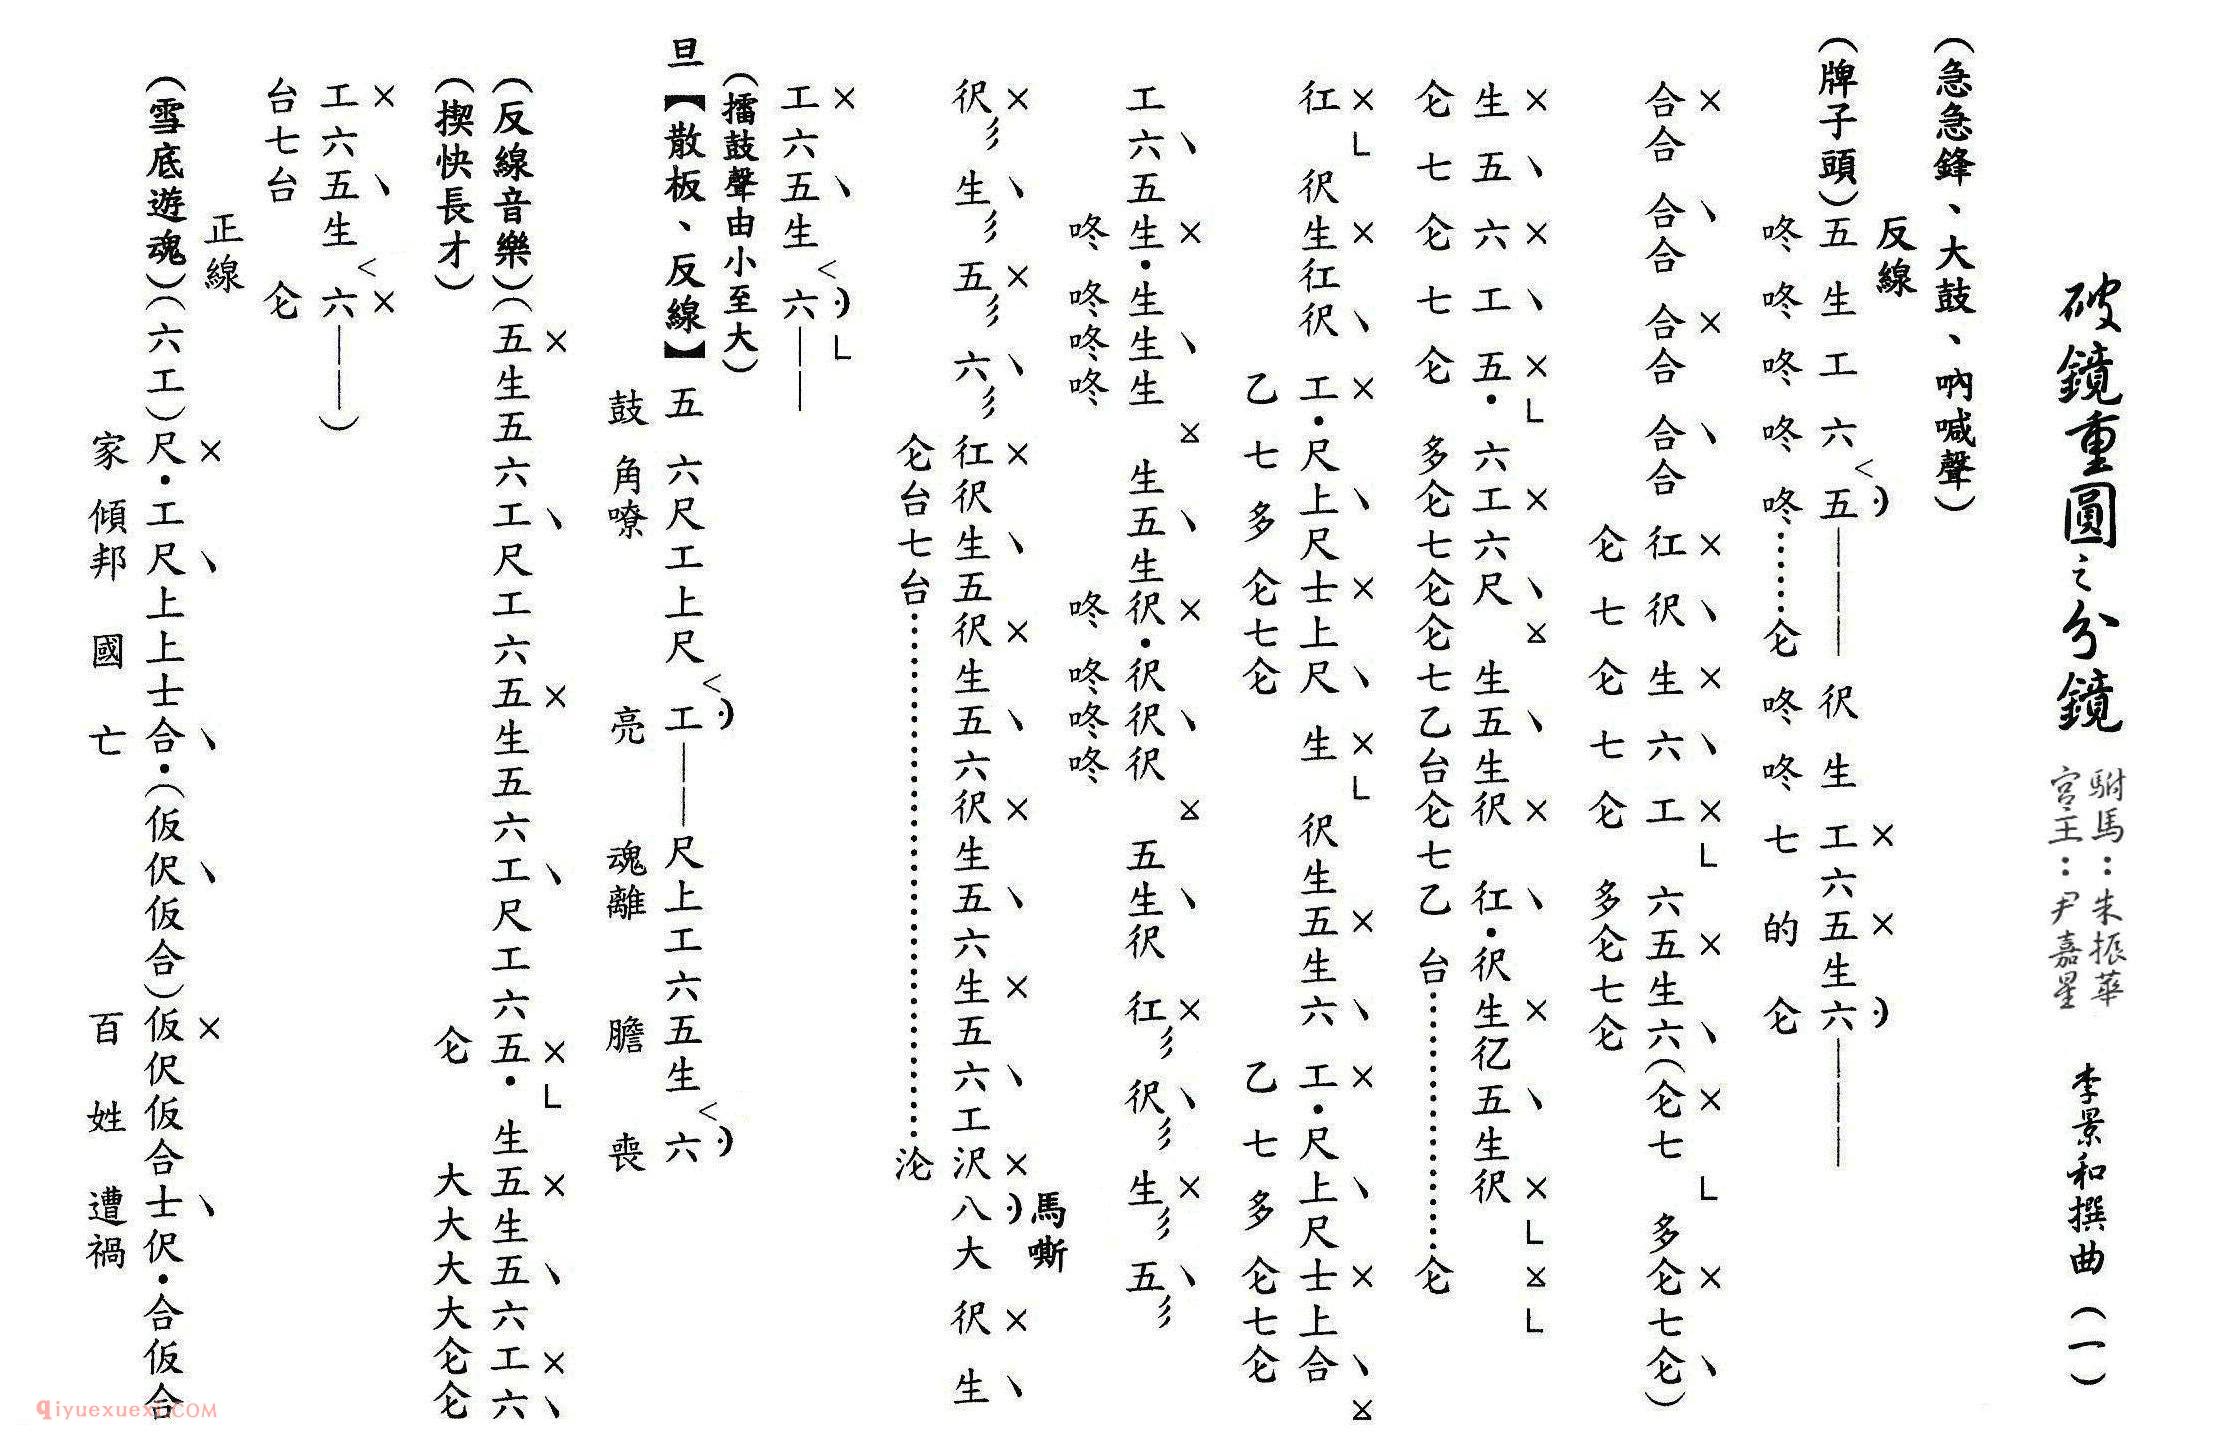 破鏡重圓之分鏡
駙馬：朱振華
宮主：尹嘉星
李景和撰曲（一）
（急急鋒、大鼓、吶喊聲）
反線
（牌子頭）五生工六五———彶生工六五生六———
咚咚咚咚咚……仑咚咚七的仑
合合合合合合合合仜彶生六工六五生六（仑七多仑七仑）
仑七仑七仑多仑七仑
生五六工五·六工六尺生五生彶仜·彶生亿五生彶
仑七仑七仑多仑七仑仑七乙台仑七乙台……仑
仜彶生仜彶工·尺上尺士上尺生彶生五生六工·尺上尺士上合
乙七多仑七仑乙七多仑七仑
工六五生·生生生生五生彶·彶彶彶五生彶仜彡彶彡生彡五彡
咚咚咚咚咚咚咚咚
馬嘶
彶彡生彡五彡六彡仜彶生五彶生五六彶生五六生五六工沢八大彶生
仑台七台……沦
工六五生六——
（擂鼓聲由小至大）
旦【散板、反線】五六尺工上尺工——尺上工六五生六
鼓角嘹亮魂離膽喪
（反線音樂）（五生五六工尺工六五生五六工尺工六五·生五生五六工六
（挈快長才）仑大大大大仑仑
工六五生六——）
台七台仑
正線
（雪底遊魂）（六工）尺·工尺上上士合·（仮伬仮合）仮伬仮合士伬·合仮合
家傾邦國亡百姓遭禍
qiyuexuexi.COM